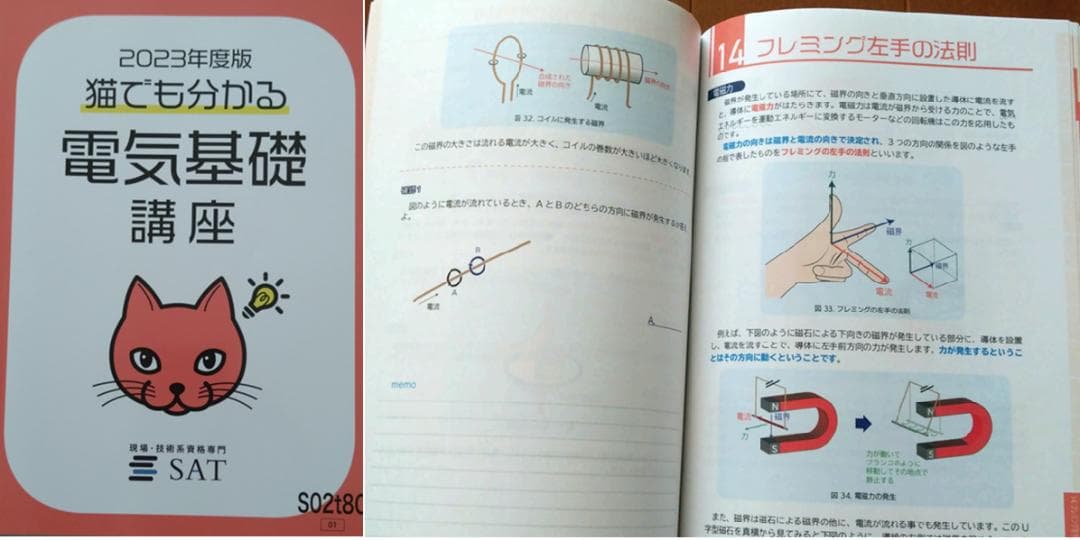 2023年度版
猫でも分かる
電気基礎
講座
現場・技術系資格専門
SAT
S02t80
01
電流
合成された
磁界の向き
電流
磁界の向き
図 32. コイルに発生する磁界
この磁界の大きさは流れる電流が大きく、コイルの巻数が大きいほど大きくなります。
確認1
図のように電流が流れているとき、AとBのどちらの方向に磁界が発生するか答え
よ。
B
A
電流
A
memo
14 フレミング左手の法則
電磁力
磁界が発生している場所にて、磁界の向きと垂直方向に設置した導体に電流を流す
と、導体に電磁力がはたらきます。電磁力は電流が磁界から受ける力のことで、電気
エネルギーを運動エネルギーに変換するモーターなどの回転機はこの力を応用したも
のです。
電磁力の向きは磁界と電流の向きで決定され、3つの方向の関係を図のような左手
の指で表したものをフレミングの左手の法則といいます。
力
磁界
電流
力
磁界
電流
図 33. フレミングの左手の法則
例えば、下図のように磁石による下向きの磁界が発生している部分に、導体を設置
し、電流を流すことで、導体に左手前方向の力が発生します。力が発生するというこ
とはその方向に動くということです。
N
電流
磁界
力
S
N
S
力が働いて
ブランコのように
移動してその地点で
静止する
図 34. 電磁力の発生
また、磁界は磁石による磁界の他に、電流が流れる事でも発生しています。このU
字型磁石を真横から見てみると下図のように、